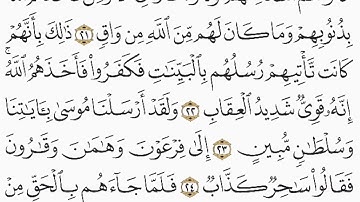 بِذُنُوبِهِمْ وَمَا كَانَ لَهُم مِّنَ ٱللَّهِ مِن وَاقٍ ۝٢١ ذَٰلِكَ بِأَنَّهُمْ
كَانَت تَّأْتِيهِمْ رُسُلُهُم بِٱلْبَيِّنَٰتِ فَكَفَرُوا۟ فَأَخَذَهُمُ ٱللَّهُ ۚ
إِنَّهُۥ قَوِىٌّ شَدِيدُ ٱلْعِقَابِ ۝٢٢ وَلَقَدْ أَرْسَلْنَا مُوسَىٰ بِـَٔايَٰتِنَا
وَسُلْطَٰنٍ مُّبِينٍ ۝٢٣ إِلَىٰ فِرْعَوْنَ وَهَٰمَٰنَ وَقَٰرُونَ
فَقَالُوا۟ سَٰحِرٌ كَذَّابٌ ۝٢٤ فَلَمَّا جَآءَهُم بِٱلْحَقِّ مِنْ